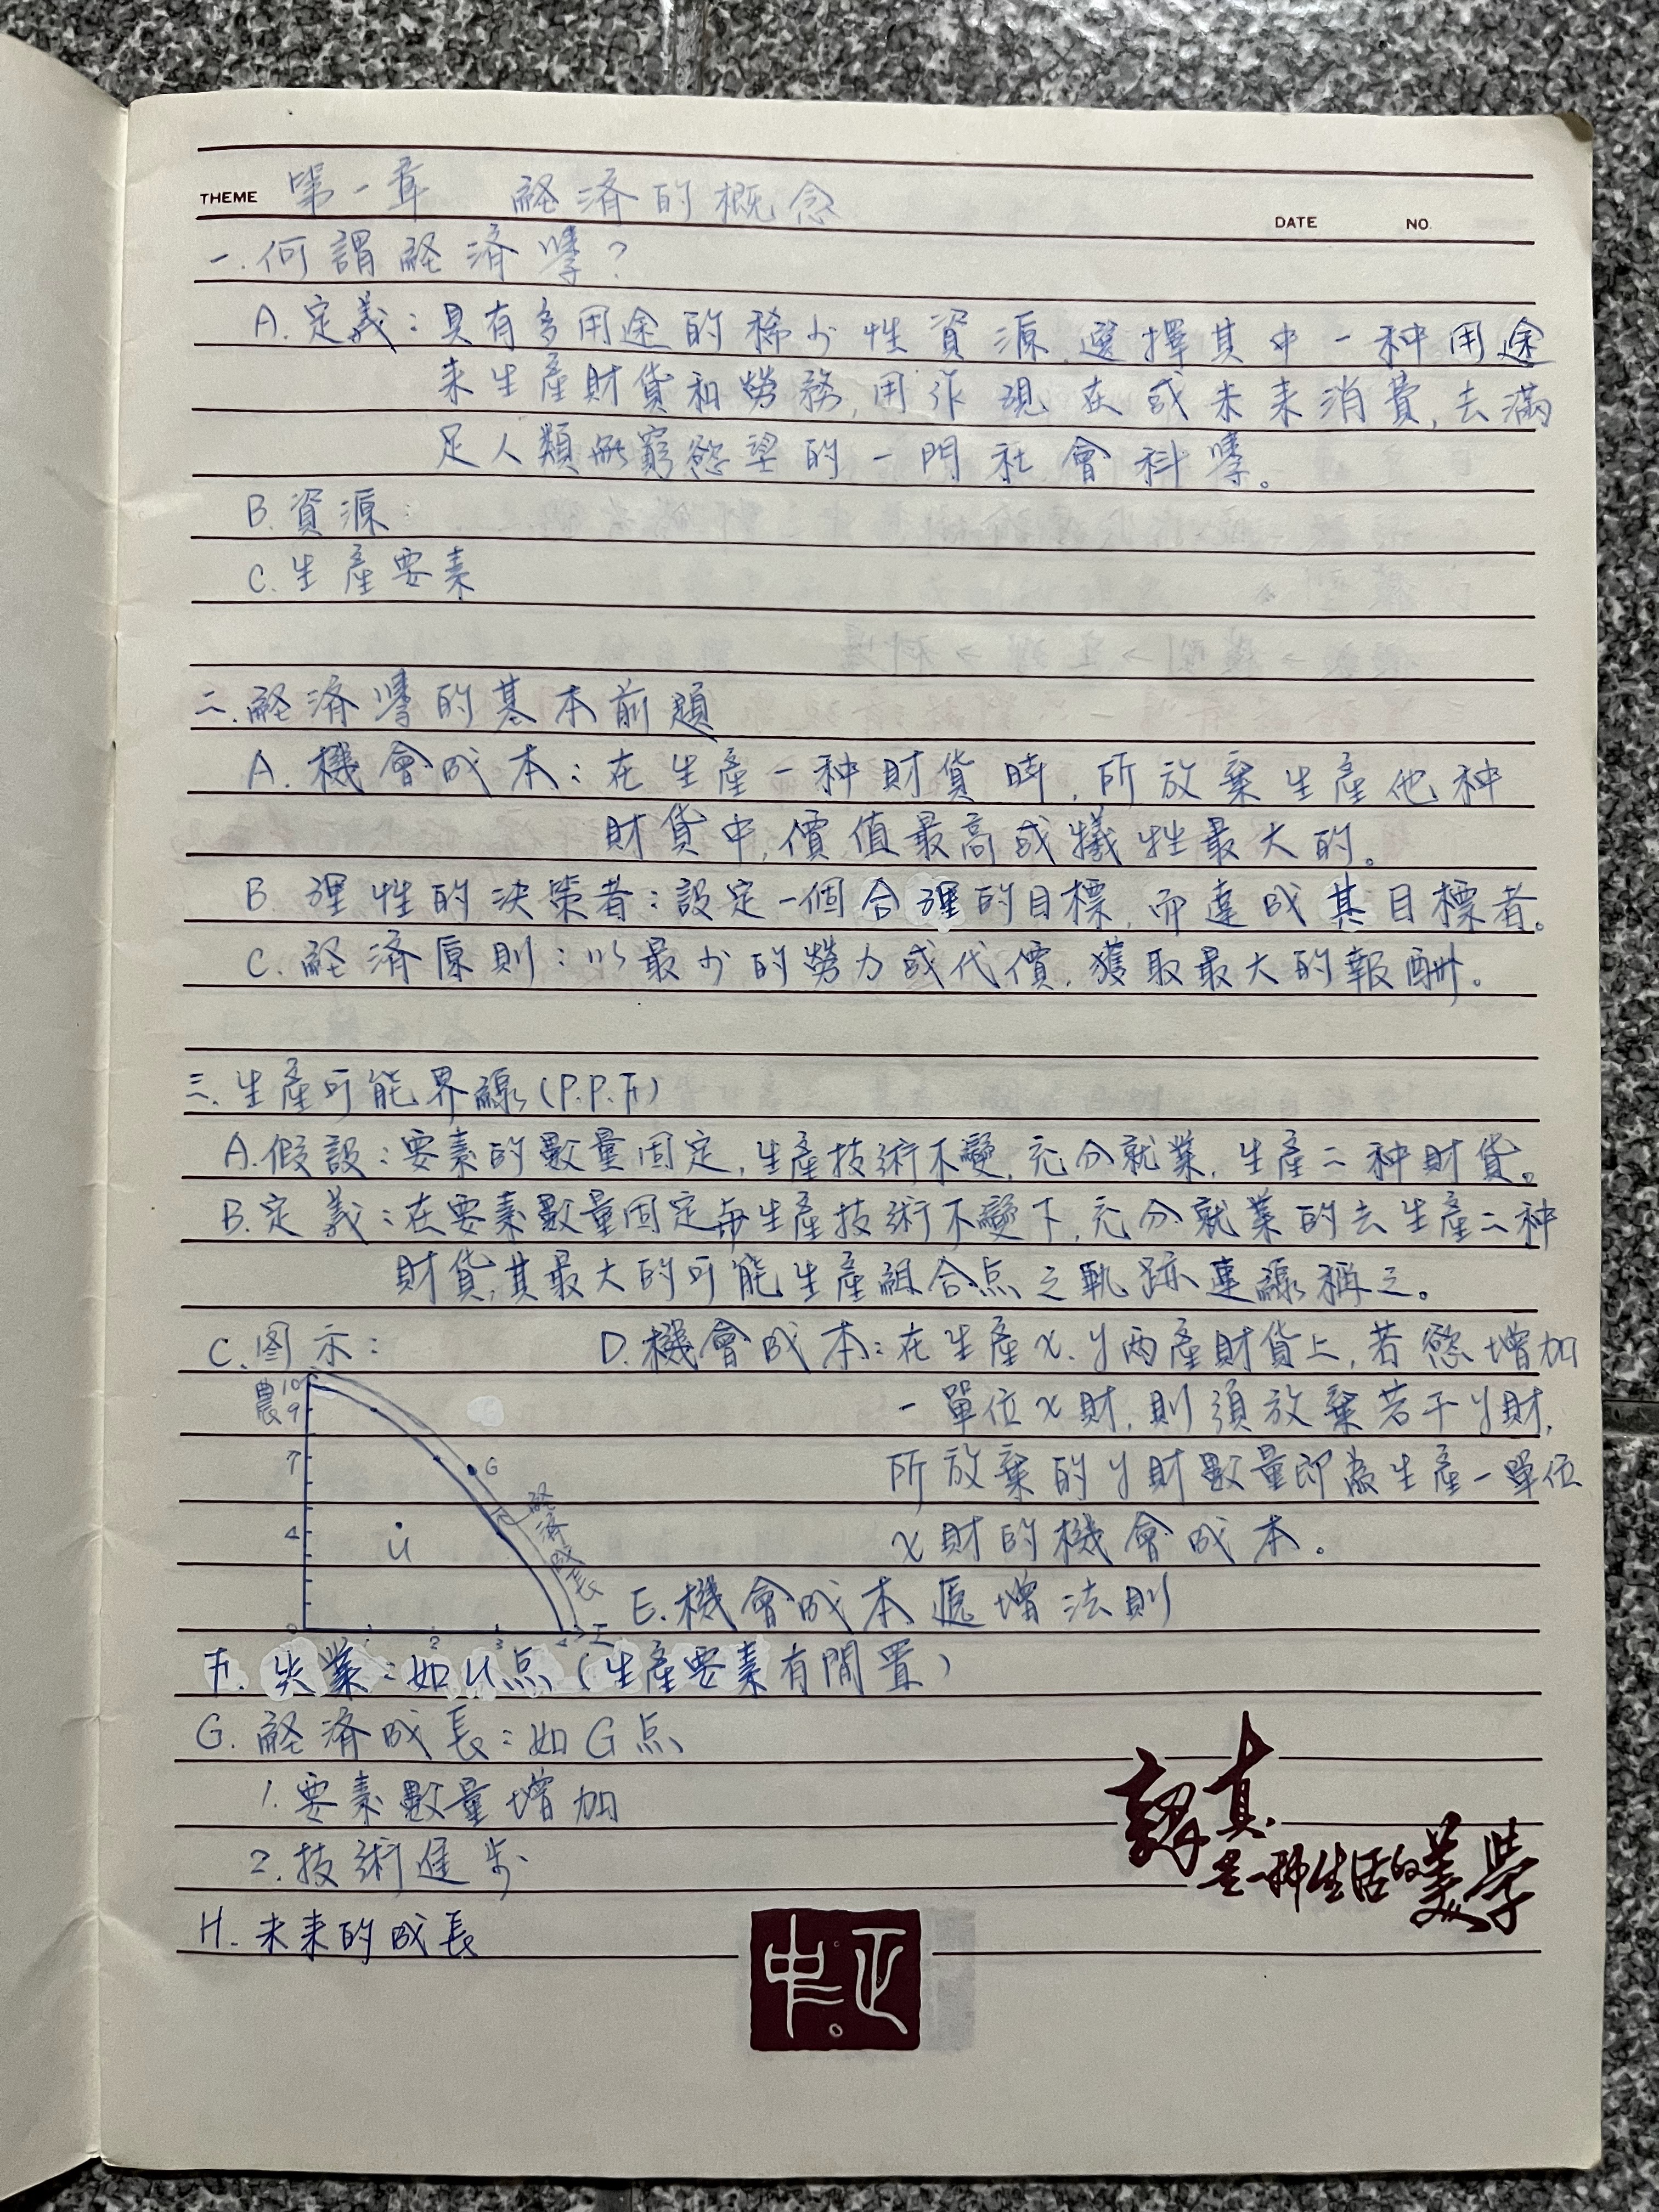 THEME 第一章 経済的概念
DATE NO.
一.何謂経済學?
A.定義:具有多用途的稀少性資源,選擇其中一种用途
来生產財貨和勞務,用作現在或未来消費,去滿
足人類無窮慾望的一門社會科學。
B.資源:
C.生產要素
二.経済學的基本前題
A.機會成本:在生產一种財貨時,所放棄生產他种
財貨中,價值最高或犧牲最大的。
B.理性的決策者:設定一個合理的目標,而達成其目標者。
C.経済原則:以最少的勞力或代價,獲取最大的報酬。
三.生產可能界線(P.P.F)
A.假設:要素的數量固定,生產技術不變,充分就業,生產二种財貨。
B.定義:在要素數量固定與生產技術不變下,充分就業的去生產二种
財貨,其最大的可能生產組合点之軌跡連線稱之。
C.图示:
農
10
9
7
4
0
1
2
3
4
工
G
U
経済成長
D.機會成本:在生產x.y兩產財貨上,若慾增加
一單位x財,則須放棄若干y財,
所放棄的y財數量即為生產一單位
x財的機會成本。
E.機會成本遞增法則
F.失業:如U点(生產要素有閒置)
G.経済成長:如G点
1.要素數量增加
2.技術進步
H.未来的成長
認真
是一種生活的美学
中正